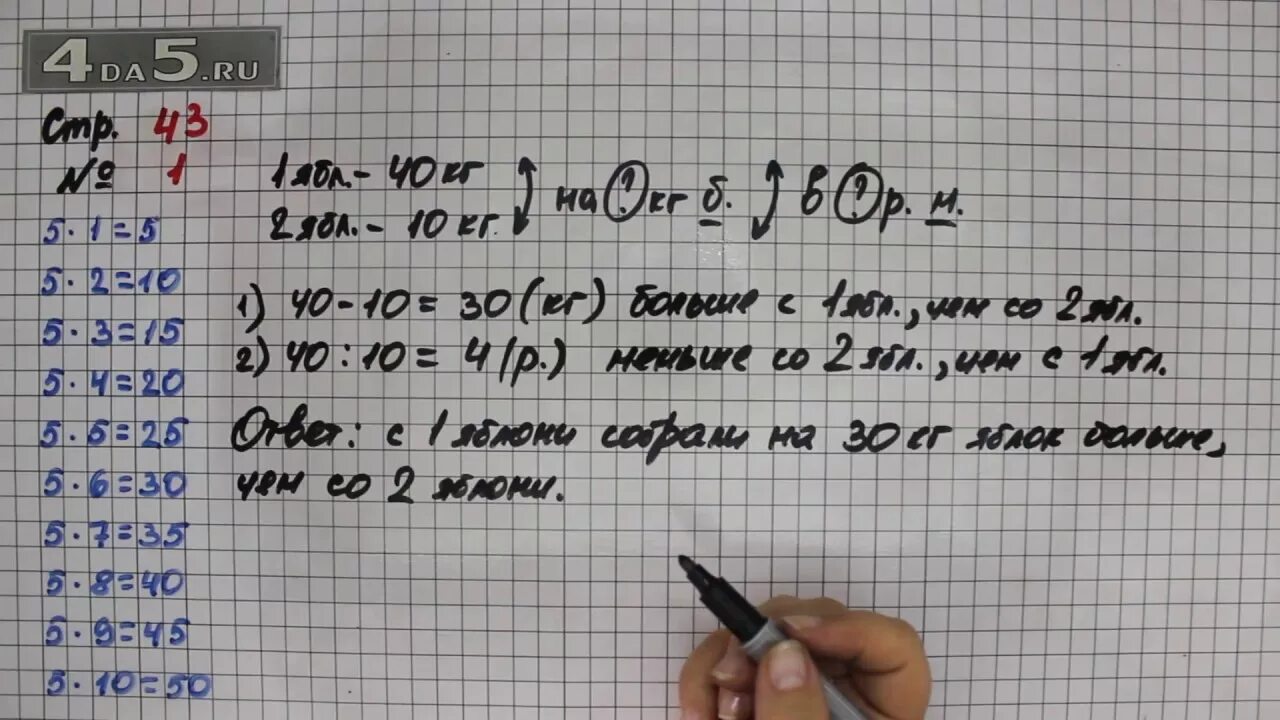 4DA5.RU
Стр. 43
№ 1
1 ябл. - 40 кг
2 ябл. - 10 кг
на ? кг б.
в ? р. м.
5 · 1 = 5
5 · 2 = 10
5 · 3 = 15
5 · 4 = 20
5 · 5 = 25
5 · 6 = 30
5 · 7 = 35
5 · 8 = 40
5 · 9 = 45
5 · 10 = 50
1) 40 - 10 = 30 (кг) больше с 1 ябл., чем со 2 ябл.
2) 40 : 10 = 4 (р.) меньше со 2 ябл., чем с 1 ябл.
Ответ: с 1 яблони собрали на 30 кг яблок больше,
чем со 2 яблони.